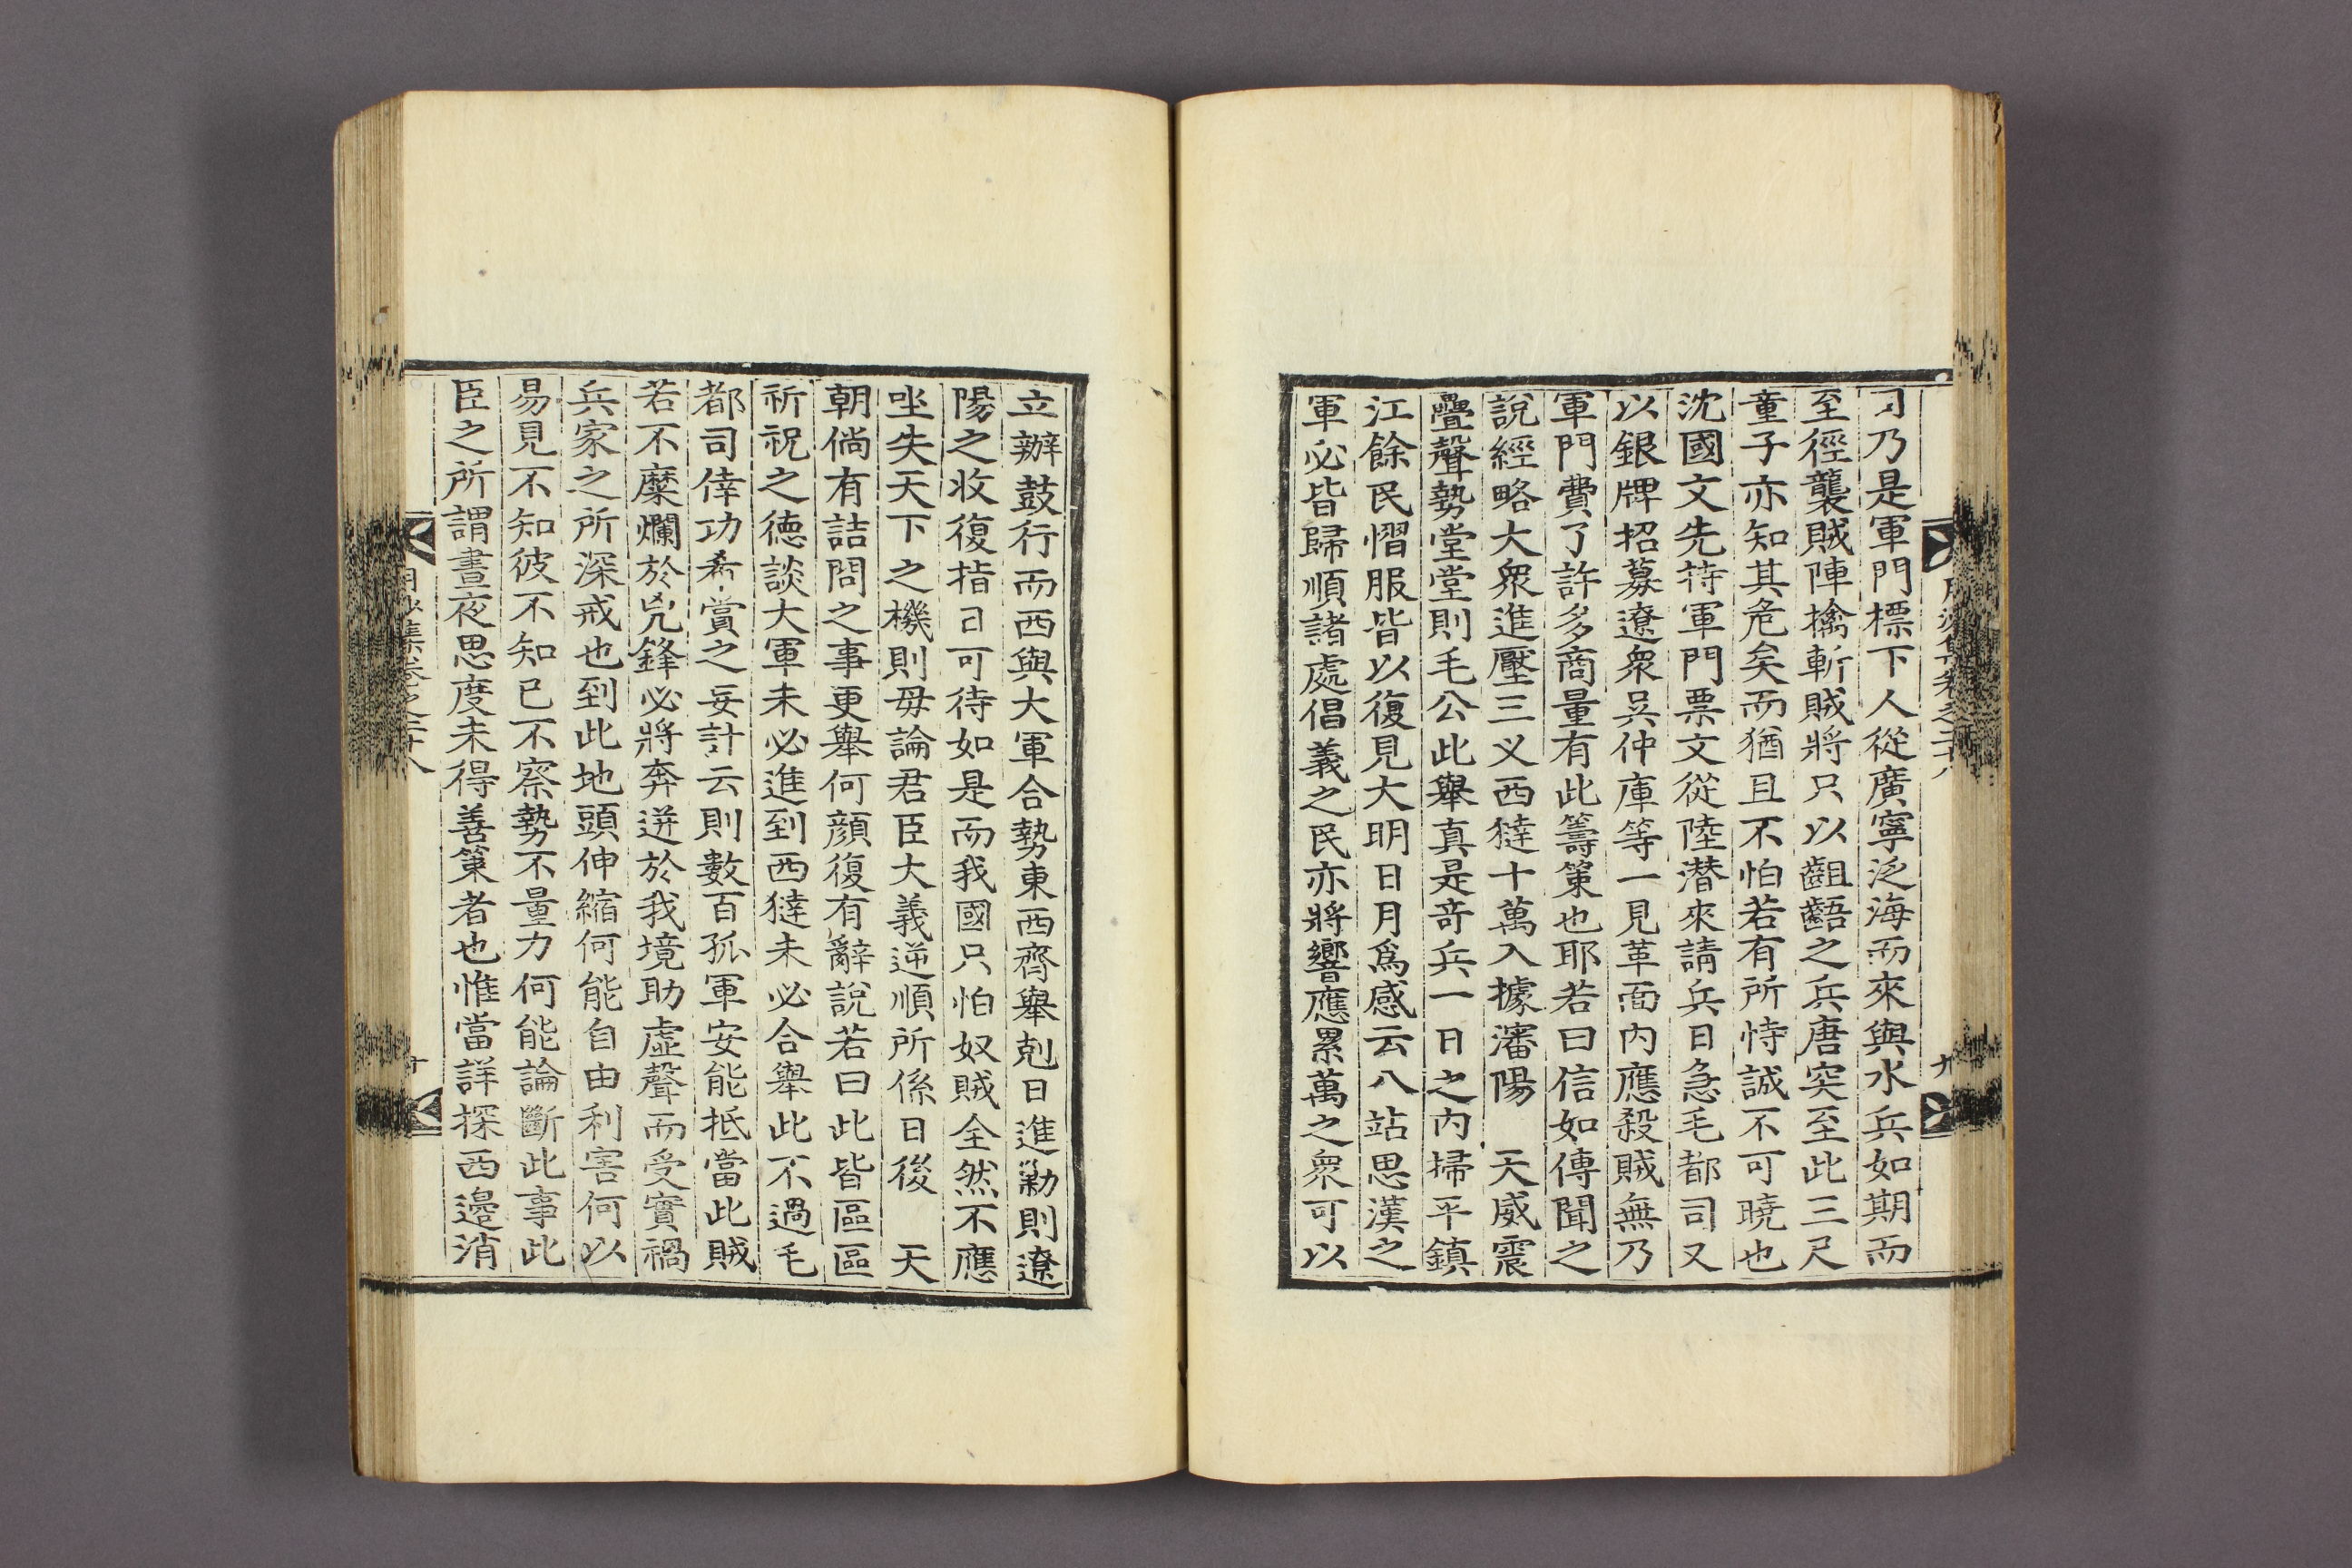 乃是軍門標下人從廣寧泛海而來與水兵如期而
至徑襲賊陣擒斬賊將只以齟齬之兵唐突至此三尺
童子亦知其危矣而猶且不怕若有所恃誠不可曉也
沈國文先持軍門票文從陸潜來請兵日急毛都司又
以銀牌招募遼衆吳仲庫等一見革面內應殺賊無乃
軍門費了許多商量有此籌策也耶若曰信如傳聞之
說經略大衆進壓三义西㺚十萬入據瀋陽　天威震
疊聲勢堂堂則毛公此擧真是竒兵一日之內掃平鎮
江餘民慴服皆以復見大明日月爲感云八站思漢之
軍必皆歸順諸處倡義之民亦將響應累萬之衆可以
立辦鼓行而西與大軍合勢東西齊擧剋日進勦則遼
陽之收復指日可待如是而我國只怕奴賊全然不應
坐失天下之機則毋論君臣大義逆順所係日後　天
朝倘有詰問之事更擧何顔復有辭說若曰此皆區區
祈祝之德談大軍未必進到西㺚未必合擧此不過毛
都司倖功希賞之妄計云則數百孤軍安能抵當此賊
若不糜爛於兇鋒必將奔迸於我境助虛聲而受實禍
兵家之所深戒也到此地頭伸縮何能自由利害何以
易見不知彼不知已不察勢不量力何能論斷此事此
臣之所謂晝夜思度未得善策者也惟當詳探西邉消
集卷之二十八
十